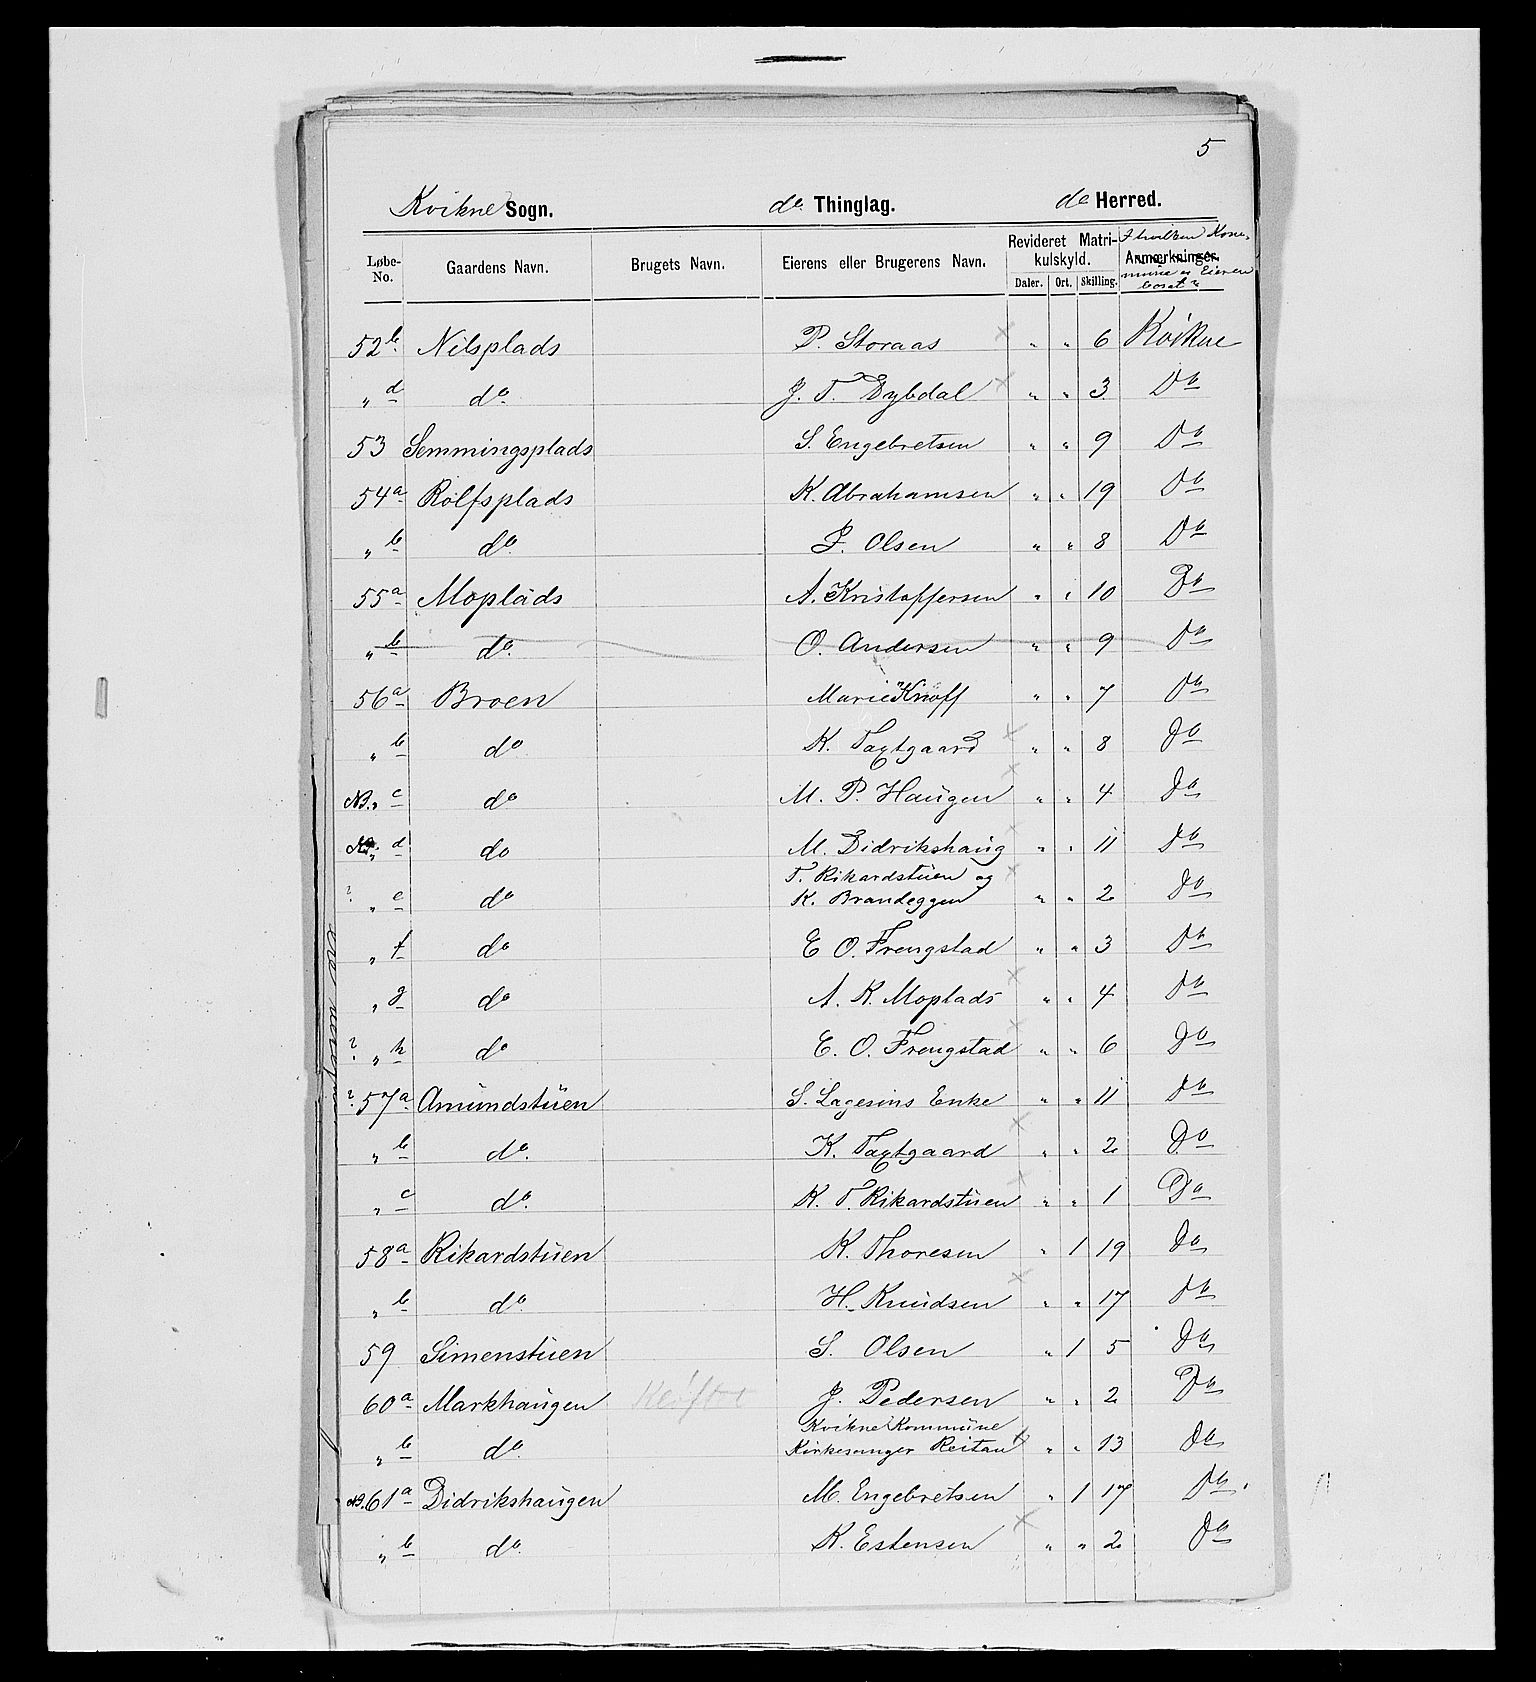 5
Kvikne Sogn. do Thinglag. do Herred.
Løbe-No. Gaardens Navn. Brugets Navn. Eierens eller Brugerens Navn. Revideret Matrikulskyld. Daler. Ort. Skilling. Anmærkninger. I hvilken Kommune er Eieren bosat?
52b. Nilsplads P. Storaas × " " 6 Kvikne
" d do. J. T. Dybdal × " " 3 Do
53 Semmingsplads S. Engebretsen " " 9 Do
54a Rolfsplads K. Abrahamsen " " 19 Do
" b do. P. Olsen " " 8 Do
55a Moplads A. Kristoffersen " " 10 Do
" b do. O. Andersen " " 9 Do
56a Broen Marie Knoff " " 7 Do
" b do K. Taxtgaard × " " 8 Do
NB. " c do M. P. Haugen × " " 4 Do
" d do M. Didrikshaug × " " 11 Do
? " e do T. Rikardstuen og × " " 2 Do
K. Brandeggen
" f do E O. Frengstad " " 3 Do
" g do A. K. Moplads × " " 4 Do
? " h do E. O. Frengstad × " " 6 Do
? 57a Amundstuen S. Lagesens Enke " " 11 Do
" b do. K. Taxtgaard × " " 2 Do
" c do. K. T. Rikardstuen × " " 1 Do
58a Rikardstuen K. Thoresen " 1 19 Do
" b do. H. Knudsen × " " 17 Do
59 Simenstuen S. Olsen " 1 5 Do
60a Markhaugen J. Pedersen " " 2 Do
" b do. Kvikne Kommune
Kirkesanger Reitan × " " 13 Do
NB. 61a Didrikshaugen M. Engebretsen " 1 17 Do
" b do. K. Estensen × " " 2 Do